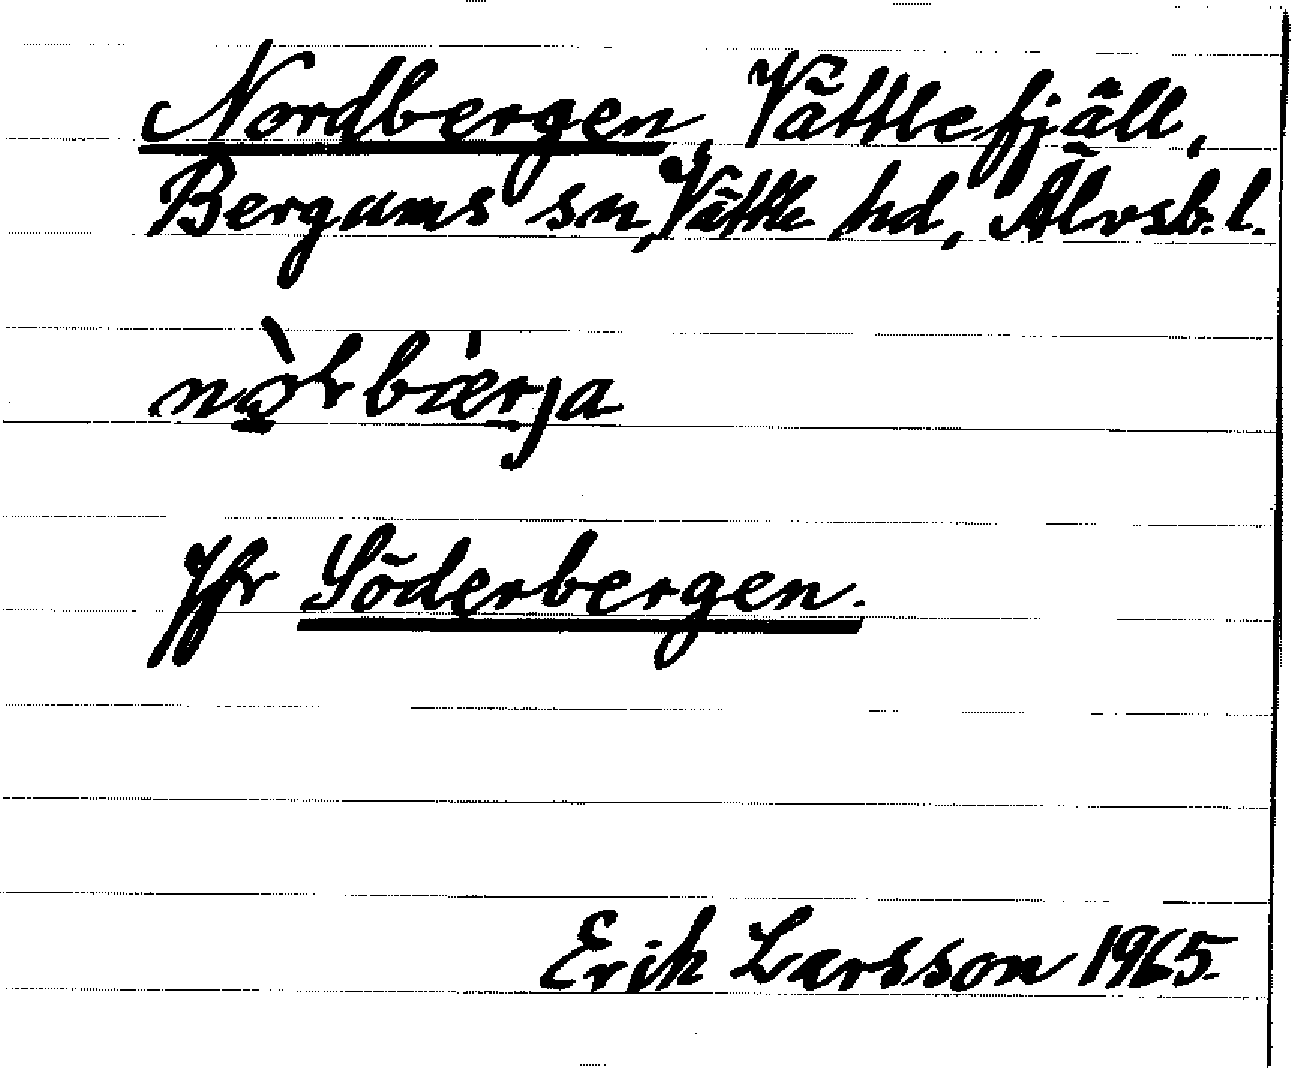 Nordbergen, Vättlefjäll,
Bergums sn, Vättle hd, Älvsb. l.
nò̠rbæ̀r̠ja
Jfr Söderbergen.
Erik Larsson 1965